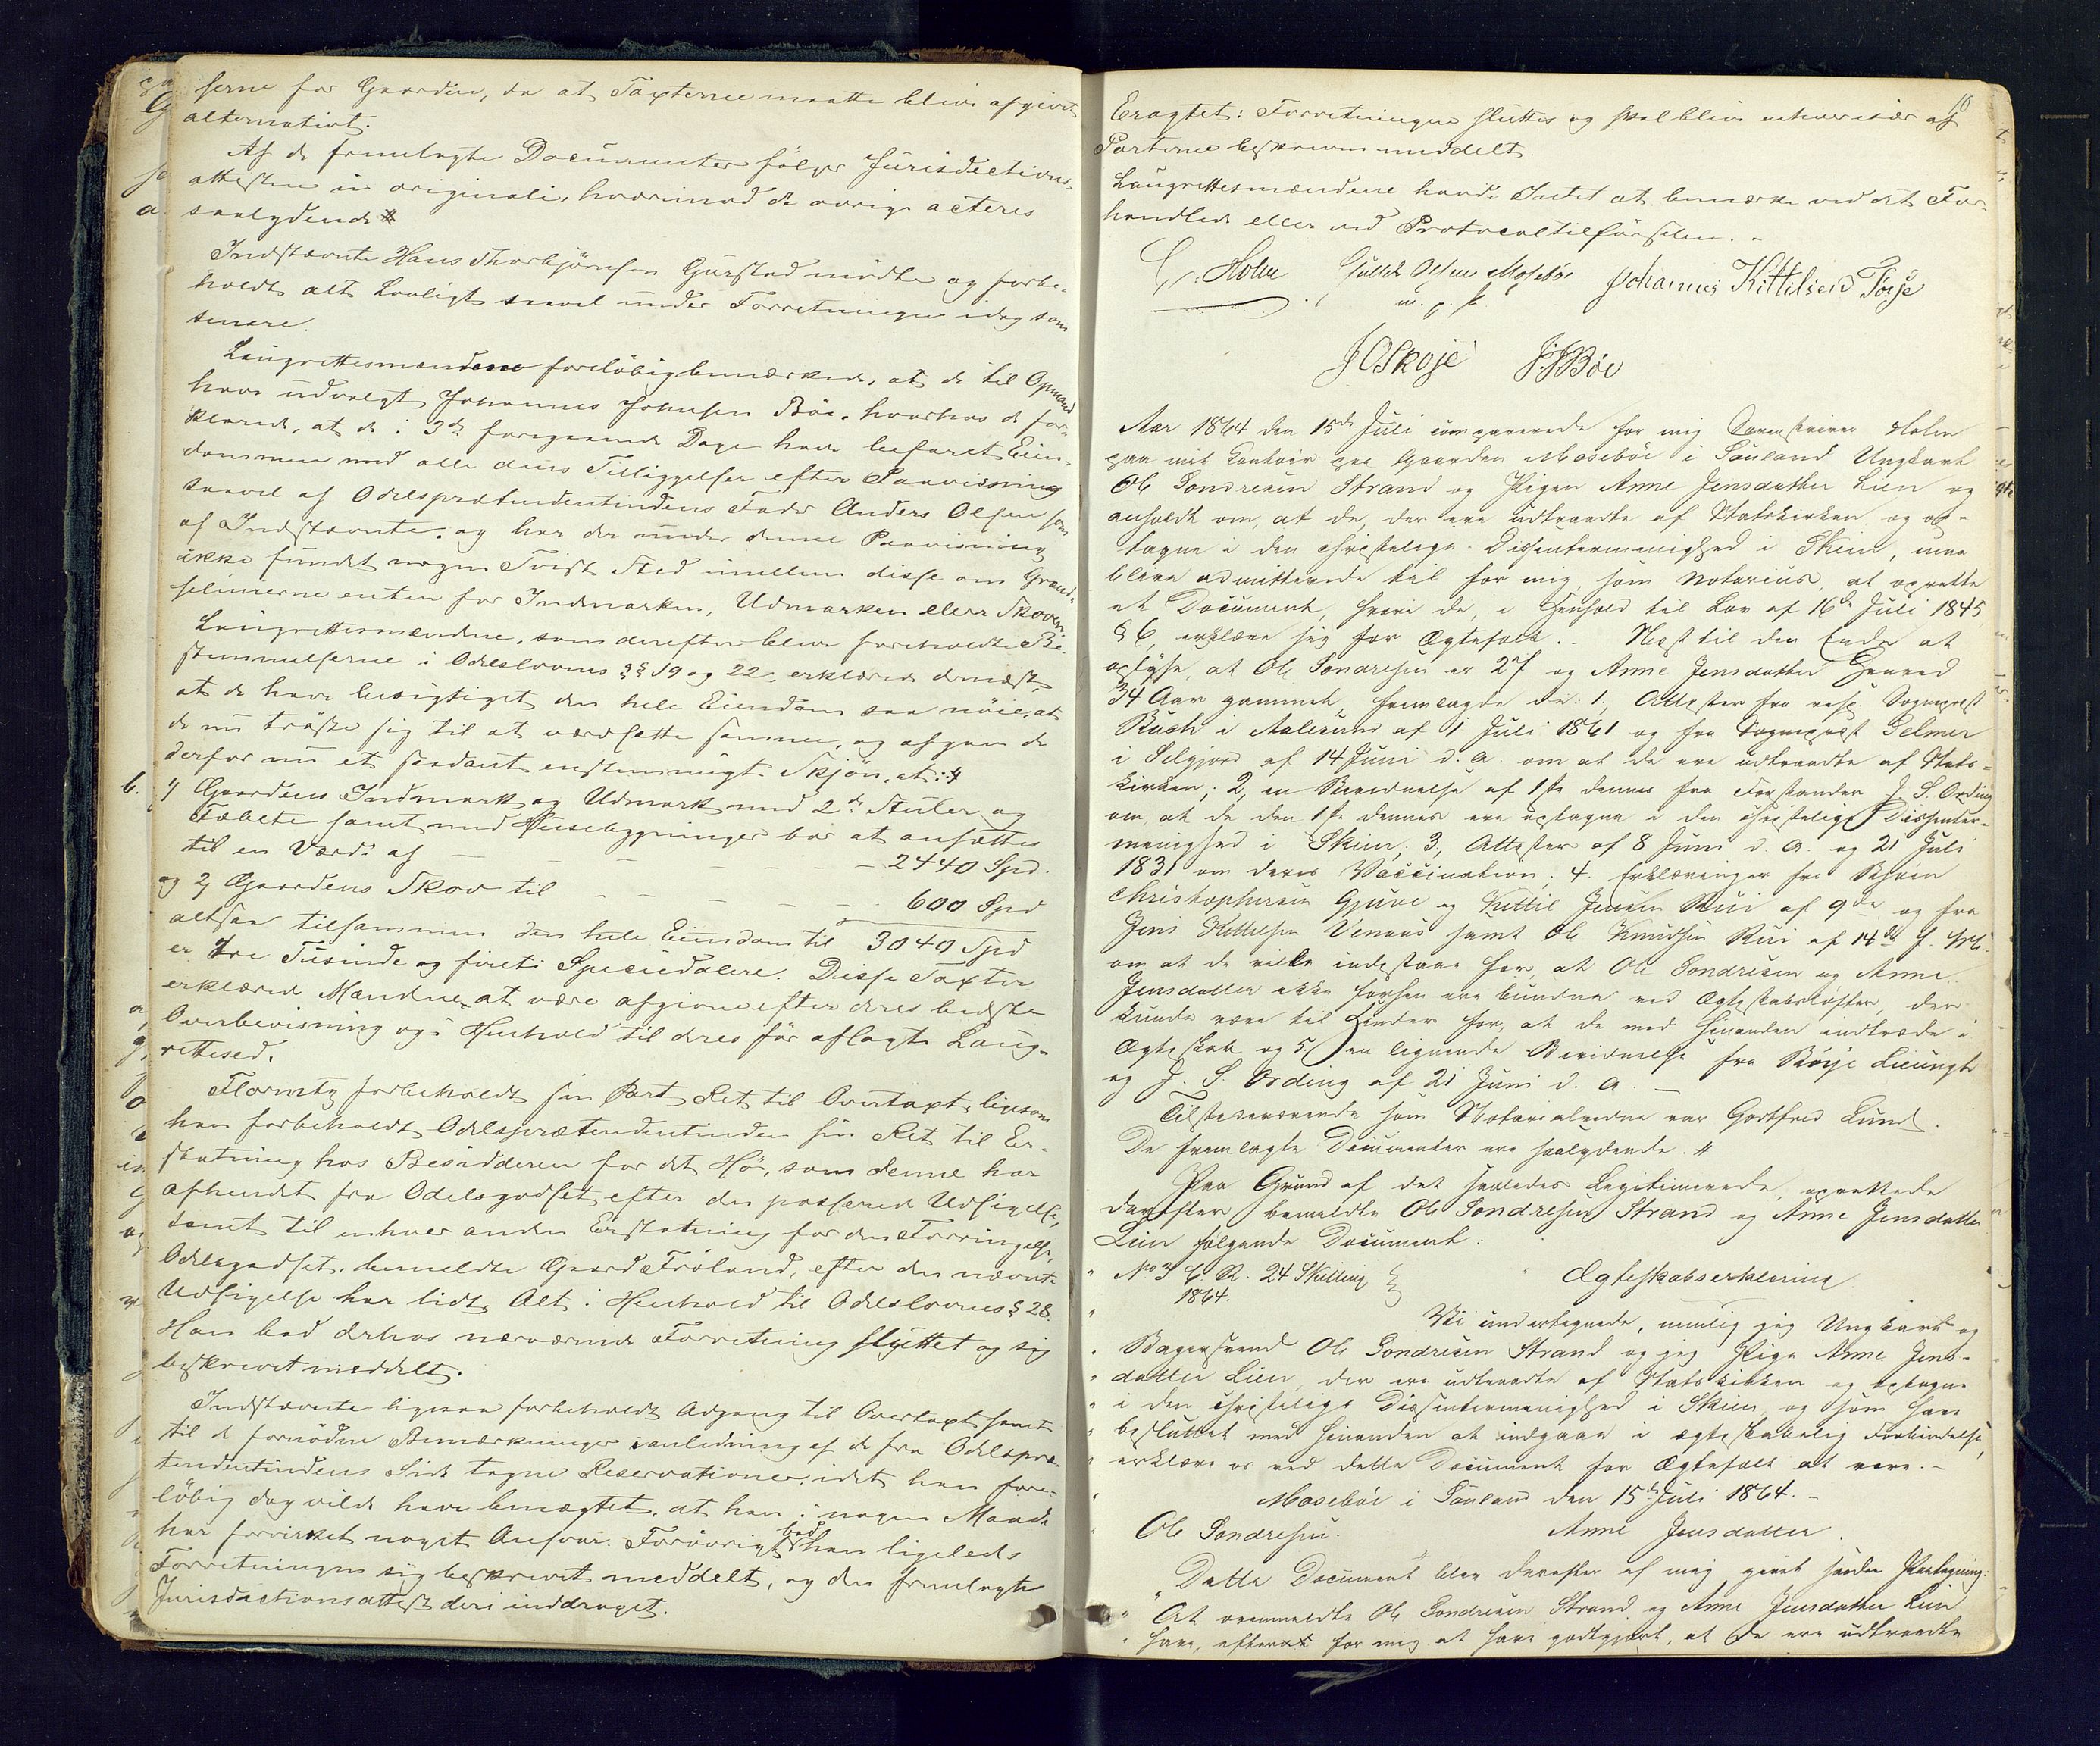 serne for Gaarden, da at Taxterne maatte blive afgivet
alternativt.
Af de fremlagte Documenter følger Jurisdictions-
attesten in originali, hvorimod de øvrige acteres
saalydende #
Indstævnte Hans Thorbjørnsen Gurstad mødte og forbe-
holdt alt Lovligt saavel under Forretningen idag som
senere.
Laugrettesmændene foreløbig bemærkede, at de til Opmand
have udvalgt Johannes Johnsen Bøe, hvorhos de for-
klarede, at de i 3de foregaaende Dage have befaret Eien-
dommen med alle dens Tilliggelser efter Paavisning
saavel af Odelsprætendentindens Fader Anders Olsen som
af Indstævnte, og har der under denne Paavisning
ikke fundet nogen Tvist Sted imellem disse om Grænd-
selinierne enten for Indmarken, Udmarken eller Skoven.
Laugrettesmændene, som derefter bleve foreholdte Be-
stemmelserne i Odelslovens §§ 19 og 22, erklærede dernæst,
at de have besigtiget den hele Eiendom saa nøie, at
de nu trøste sig til at værdsætte samme, og afgave de
derfor nu et saadant enstemmigt Skjøn, at: #
b. 1) Gaardens Indmark og Udmark med 2de Støler og
Fæbeite samt med Huusebygninger bør at ansættes
til en Værdi af — — — — — 2440 Spd.
og 2) Gaardens Skov til — — — — — 600 Spd
altsaa tilsammen den hele Eiendom til 3040 Spd
er tre Tusinde og fireti Speciedalere. Disse Taxter
erklærede Mændene at være afgivne efter deres bedste
Overbevisning og i Henhold til deres før aflagte Laug-
rettesed.
Flormtz forbeholdt sin Part Ret til Overtaxt, ligesom
han forbeholdt Odelsprætendentinden sin Ret til Er-
statning hos Besidderen for det Hø, som denne har
afhendet fra Odelsgodset efter den passerede Udsigelse,
samt til enhver anden Erstatning for den Forringelse,
Odelsgodset, bemeldte Gaard Frøland, efter den nævnte
Udsigelse har lidt, Alt i Henhold til Odelslovens § 28.
Han bad derhos nærværende Forretning sluttet og sig
beskrevet meddelt.
Indstævnte ligesaa forbeholdt Adgang til Overtaxt samt
til de fornødne Bemærkninger i anledning af de fra Odelspræ-
tendentindens Side tagne Reservationer, idet han fore-
løbig dog vilde have benægtet, at han i nogen Maade
har forvirket noget Ansvar. Forøvrigt bad han ligeledes
Forretningen sig beskrevet meddelt, og den fremlagte
Jurisdictionsattest deri inddraget.
10
Eragtet: Forretningen sluttes og skal blive enhver især af
Parterne beskreven meddelt.
Laugrettesmændene havde Intet at bemærke ved det For-
handlede eller ved Protocoltilførselen. –
C. Holm Gullek Olsen Mosebøe Johannes Kittilsen Torsje
m. p. P.
J O Skoje J. J Bøe
Aar 1864 den 15de Juli comparerede for mig Sorenskriver Holm
paa mit Contoir paa Gaarden Mosebøe i Sauland Ungkarl
Ole Sondresen Strand og Pigen Anne Jensdatter Lien og
anholdt om, at de, der ere udtraadte af Statskirken og op-
tagne i den christelige Dissentermenighed i Skien, maa
blive admitterede til for mig som Notarius, at oprette
et Document, hvori de, i Henhold til Lov af 16de Juli 1845
§ 6, erklære sig for Ægtefolk. – Næst til den Ende at
oplyse, at Ole Sondresen er 27 og Anne Jensdatter Henved
34 Aar gammel, fremlagde de: 1, Attester fra resp. Sognepræst
Buch i Aalesund af 1 Juli 1861 og fra Sognepræst Gelmer
i Selgjord af 14 Juni d. A. om at de ere udtraadte af Stats-
kirken; 2, en Bevidnelse af 1ste dennes fra Forstander J. S. Ording
om, at de den 1ste dennes ere optagne i den christelige Dissenter-
menighed i Skien; 3, Attester af 8 Juni d. A. og 21 Juli
1831 om deres Vaccination; 4. Erklæringer fra Bjørn
Christophersen Gjuve og Kittil Jensen Rui af 9de og fra
Jens Kittelsen Venaas samt Ole Knudsen Rui af 14de f. M.
om at de ville indestaae for, at Ole Sondresen og Anne
Jensdatter ikke forhen ere bundne ved Ægteskabsløfter, der
kunde være til Hinder for, at de med hinanden indtræde i
Ægteskab, og 5, en lignende Bevidnelse fra Børje Lieungh
og J. S. Ording af 21 Juni d. A. —
Tilstedeværende som Notarialvidne var Gotfred Lund.
De fremlagte Documenter ere saalydende. #
Paa Grund af det saaledes Legitimerede, oprettede
derefter bemeldte Ole Sondresen Strand og Anne Jensdatter
Lien følgende Document:
" No 3. C. R. 24 Skilling
1864.
Ægteskabserklæring
" Vi undertegnede, nemlig jeg Ungkarl og
" Bagersvend Ole Sondresen Strand og jeg Pige Anne Jens-
" datter Lien, der ere udtraadte af Statskirken og optagne
" i den christelige Dissentermenighed i Skien, og som have
" besluttet med hinanden at indgaae i ægteskabelig Forbindelse,
" erklære os ved dette Document for Ægtefolk at være. –
" Mosebøe i Sauland den 15de Juli 1864. –
" Ole Sondresen. Anne Jensdatter.
Dette Document blev derefter af mig givet saadan Paategning:
" At ovenmeldte Ole Sondresen Strand og Anne Jensdatter Lien
" have, efterat for mig at have godtgjort, at de ere udtraadte